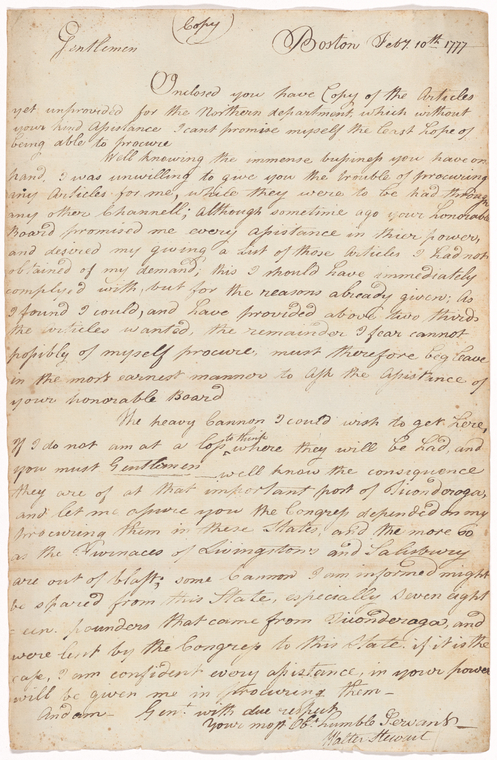 Copy
Gentlemen Boston Feby. 10th. 1777
Inclosed you have Copy of the Articles
yet unprovided for the Northern department which without
your kind Assistance I cant promise myself the least hope of
being able to procure
Well knowing the immense business you have on
hand, I was unwilling to give you the trouble of procuring
any Articles for me, while they were to be had through
any other Channell; Although sometime ago your honorable
Board promised me every assistance in thier power,
and desired my giving a List of those Articles I had not
obtained of my demand; this I should have immediately
complyed with, but for the reasons already given; As
I found I could, and have provided above two thirds
the articles wanted, the remainder I fear cannot
possibly of myself procure, must therefore beg leave
in the most earnest manner to Ask the Assistance of
your honorable Board
The heavy Cannon I could wish to get here,
If I do not am at a loss to think where they will be had, and
you must Gentlemen well know the consequence
they are of at that important post of Ticonderoga,
and let me assure you the Congress depended on my
procuring them in these States, and the more so
as the Furnaces of Livingstons and Salisbury
are out of blast, some Cannon I am informed might
be spared from this State, especially seven eight
een pounders that came from Ticonderoga, and
were lent by the Congress to this State if it is the
case, I am confident every assistance, in your power
will be given me in procuring them —
And am — Gent. with due respect
Your most Obt. humble Servant —
Walter Stewart